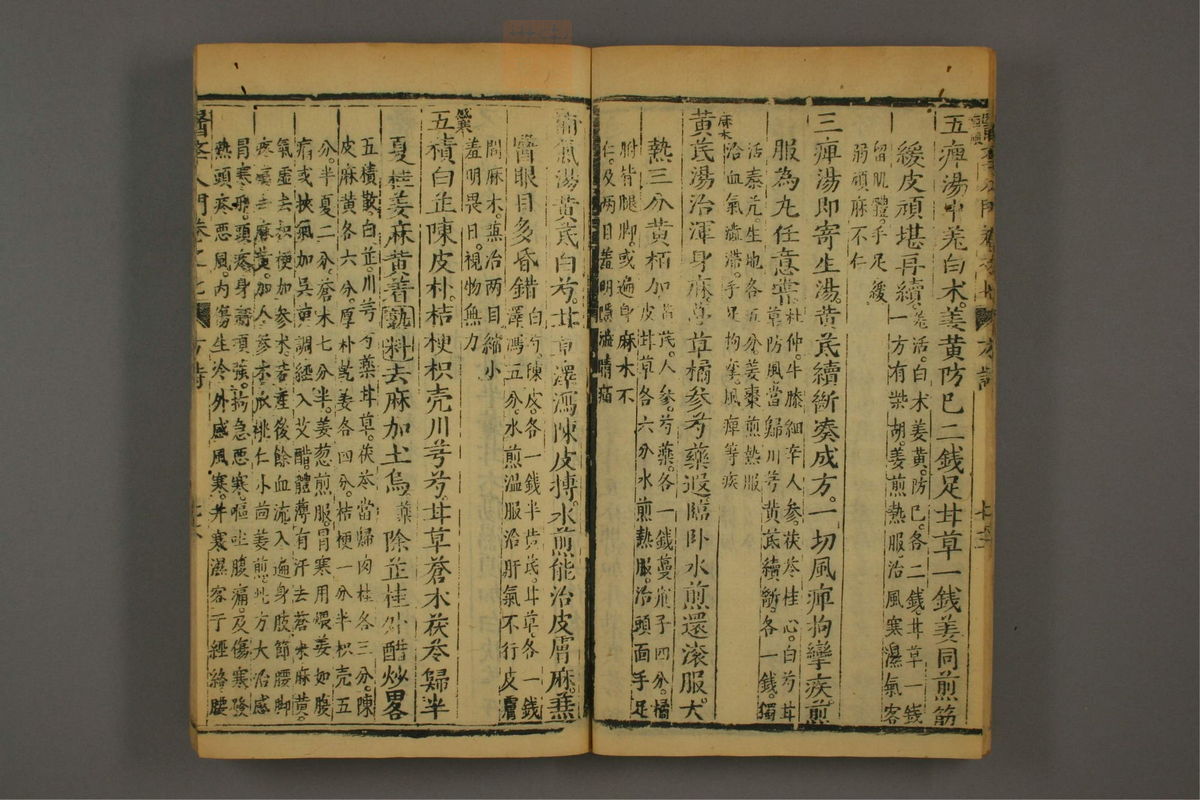 五痺湯中羗白术姜黄防巳二銭足甘草一銭姜同煎筋
緩皮頑堪再續羗活白木姜黄防巳各二銭甘草一銭一方有柴胡姜煎熱服治風寒濕氣客
留肌體手足緩弱頑麻不仁
三痺湯即寄生湯黄芪續断凑成方一切風痺拘攣疾煎
服為丸任意嘗杜仲牛膝細辛人参茯苓桂心白芍甘草防風當歸川芎黄芪續断各一銭獨
活秦艽生地各五分姜棗煎熱服治血氣澁滞手足拘攣風痺等疾
麻木
黄芪湯治渾身麻甘草橘参芍藥遐臨卧水煎還滚服大
熱三分黄栢加黄芪人参芍藥各一銭蔓荆子四分橘皮甘草各六分水煎熱服治頭面手足
胕背腿脚或遍身麻木不仁及两目羞明隱澁睛痛
黄芪白芍甘草澤瀉陳皮搏水煎能治皮膚麻兼
醫眼目多昏錯白芍陳皮各一銭半黄芪甘草各一銭澤瀉五分水煎温服治肝氣不行皮膚
間麻木兼治两目縮小羞明畏日視物無力
五積白芷陳皮朴桔梗枳壳川芎芍甘草蒼木茯苓歸半
夏桂姜麻黄着熟料去麻加土烏藥除芷桂外醋炒畧
五積散白芷川芎芍藥甘草茯苓當歸肉桂各三分陳皮麻黄各六分厚朴乾姜各四分桔梗一分半枳壳五
分半夏二分蒼木七分半姜葱煎服胃寒用煨姜如腹痛或挾氣加吴萸調經入艾醋體薄有汗去蒼术麻黄
氣虚去枳梗加参术若産後餘血流入遍身肢節腰脚疼痛去麻黄加人参木瓜桃仁小茴姜煎此方大治感
胃寒邪頭疼身痛項強拘急悪寒嘔吐腹痛及傷寒發熱頭疼悪風内傷生冷外感風寒并寒濕客于經絡腰